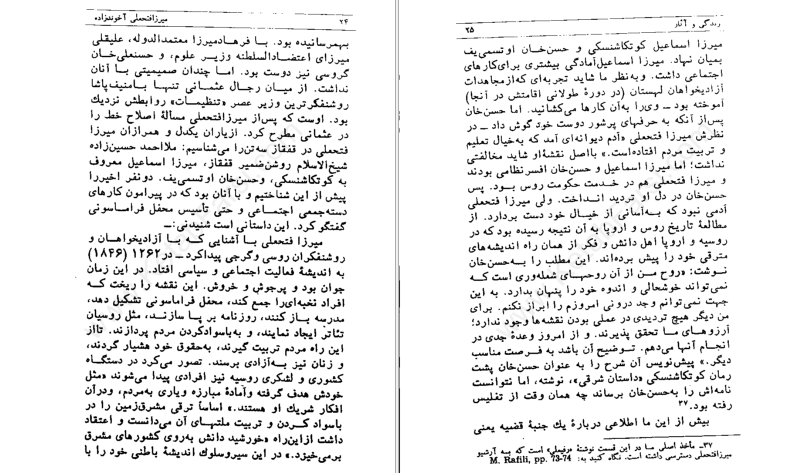 ۲۴ میرزافتحعلی آخوندزاده
بهمرسانیده بود. با فرهادمیرزا معتمدالدوله، علیقلی
میرزای اعتضادالسلطنه وزیر علوم، و حسنعلی‌خان
گروسی نیز دوست بود. اما چندان صمیمیتی با آنان
نداشت. از میان رجال عثمانی تنها بامنیف‌پاشا
روشنفکرترین وزیر عصر «تنظیمات» روابطش نزدیك
بود. اوست که پس‌از میرزافتحعلی مسألهٔ اصلاح خط را
در عثمانی مطرح کرد. ازیاران یکدل و همرازان میرزا
فتحعلی در قفقاز سه‌تن‌را می‌شناسیم: ملااحمد حسین‌زاده
شیخ‌الاسلام روشن‌ضمیر قفقاز، میرزا اسمعیل معروف
به کوتکاشنسکی، وحسن‌خان اوتسمی‌یف. دونفر اخیررا
پیش از این شناختیم و با آنان بود که در پیرامون کارهای
دسته‌جمعی اجتماعی و حتی تأسیس محفل فراماسونی
گفتگو کرد. این داستانی است شنیدنی:ــ
میرزا فتحعلی با آشنایی که با آزادیخواهان و
روشنفکران روسی وگرجی پیداکرد ــ در ۱۲۶۲ (۱۸۴۶)
به اندیشهٔ فعالیت اجتماعی و سیاسی افتاد. در این زمان
جوان بود و پرجوش و خروش. این نقشه را ریخت که
افراد نخبه‌ای‌را جمع کند، محفل فراماسونی تشکیل دهد،
مدرسه باز کنند، روزنامه بر پا سازند، مثل روسیان
تئاتر ایجاد نمایند، و به‌باسوادکردن مردم پردازند. تااز
این راه مردم تربیت گیرند، به‌حقوق خود هشیار گردند،
و زنان نیز به‌آزادی برسند. تصور می‌کرد در دستگاه
کشوری و لشکری روسیه نیز افرادی پیدا می‌شوند «مثل
خودش هدف گرفته وآمادهٔ مبارزه ویاری به‌مردم، ودرآن
افکار شریك او هستند.» اساساً ترقی مشرق‌زمین را در
باسواد کردن و تربیت ملتهای آن می‌دانست و اعتقاد
داشت ازاین‌راه «خورشید دانش به‌روی کشورهای مشرق
برمی‌خیزد.» در این سیروسلوك اندیشهٔ باطنی خود را با
زندگی و آثار ۲۵
میرزا اسماعیل کوتکاشنسکی و حسن‌خان اوتسمی‌یف
بمیان نهاد. میرزا اسمعیل‌آمادگی بیشتری برای‌کارهای
اجتماعی داشت. وبه‌نظر ما شاید تجربه‌ای که‌ازمجاهدات
آزادیخواهان لهستان (در دورهٔ طولانی اقامتش در آنجا)
آموخته بود ــ وی‌را به‌آن کارها می‌کشانید. اما حسن‌خان
پس‌از آنکه به حرفهای پرشور دوست خود گوش داد ــ در
نظرش میرزا فتحعلی «آدم دیوانه‌ای آمد که‌به‌خیال تعلیم
و تربیت مردم افتاده‌است.» بااصل نقشهٔ‌او شاید مخالفتی
نداشت؛ اما میرزا اسمعیل و حسن‌خان افسر نظامی بودند
و میرزا فتحعلی هم در خدمت حکومت روس بود. پس
حسن‌خان در دل او تردید انداخت. ولی میرزا فتحعلی
آدمی نبود که به‌آسانی از خیال خود دست بردارد. از
مطالعهٔ تاریخ روس و اروپا به آن نتیجه رسیده بود که در
روسیه و اروپا اهل دانش و فکر از همان راه اندیشه‌های
مترقی خود را پیش برده‌اند. این مطلب را به‌حسن‌خان
نوشت: «روح من از آن روحهای شعله‌وری است که
نمی‌تواند خوشحالی و اندوه خود را پنهان بدارد. به این
جهت نمی‌توانم وجد درونی امروزم را ابراز نکنم. برای
من دیگر هیچ تردیدی در عملی بودن نقشه‌ها وجود ندارد؛
آرزوهای ما تحقق پذیرند. و از امروز وعدهٔ جدی در
انجام آنها می‌دهم. توضیح آن باشد به فرصت مناسب
دیگر.» پیش‌نویس آن شرح را به عنوان حسن‌خان پشت
رمان کوتکاشنسکی «داستان شرقی»، نوشته، اما نتوانست
نامه‌اش را به‌حسن‌خان برساند چه همان وقت از تفلیس
رفته بود.۳۷
بیش از این ما اطلاعی دربارهٔ یك جنبهٔ قضیه یعنی
۳۷ــ مأخذ اصلی ما در این قسمت نوشتهٔ «رفیعلی» است که به آرشیو
میرزافتحعلی دسترسی داشته است. نگاه کنید به: M. Rafili, pp. 73-74